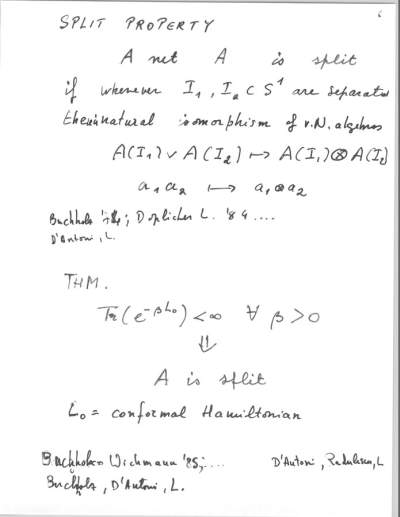 6
SPLIT PROPERTY
A net A is split
if whenever I₁, I₂ ⊂ S¹ are separated
then natural isomorphism of v.N. algebras
A(I₁) ∨ A(I₂) ↦ A(I₁) ⊗ A(I₂)
a₁a₂ ↦ a₁ ⊗ a₂
Buchholz '74; Doplicher L. '84 ....
D'Antoni, L.
THM.
Tr(e^{-βL₀}) < ∞ ∀ β > 0
⇓
A is split
L₀ = conformal Hamiltonian
Buchholz Wichmann '85; .... D'Antoni, Radulescu, L
Buchholz, D'Antoni, L.